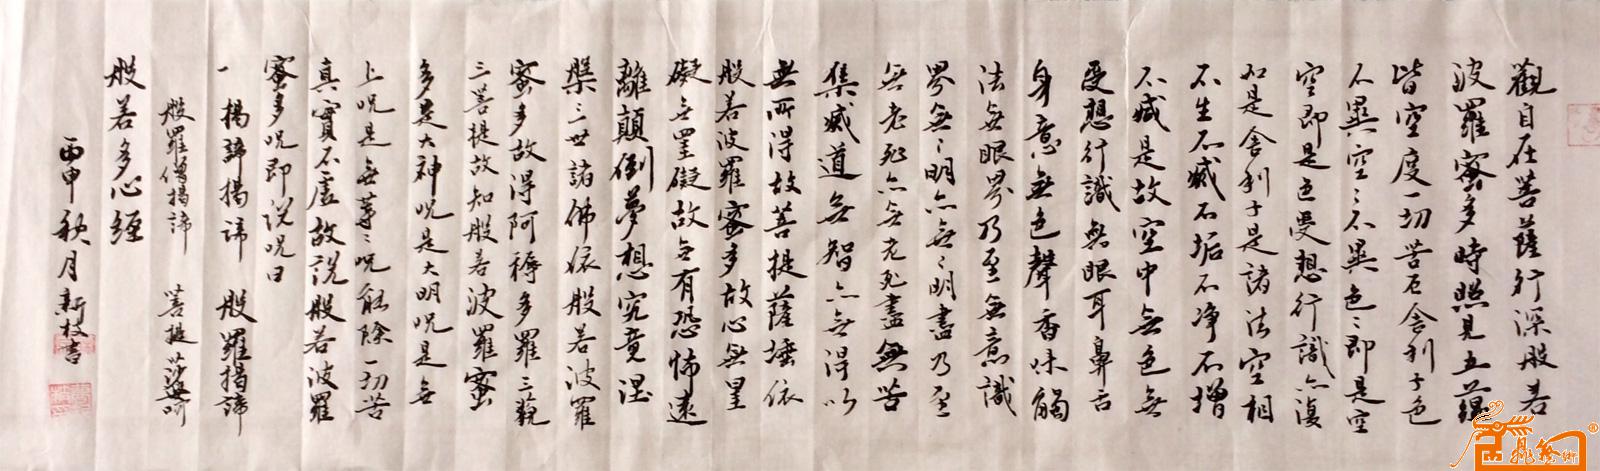 觀自在菩薩行深般若
波羅蜜多時照見五蘊
皆空度一切苦厄舍利子色
不異空〻不異色〻即是空
空即是色受想行識亦復
如是舍利子是諸法空相
不生不滅不垢不净不增
不滅是故空中无色无
受想行識無眼耳鼻舌
身意無色聲香味觸
法無眼界乃至無意識
界無〻明亦無〻明盡乃至
無老死亦無老死盡無苦
集滅道無智亦無得以
無所得故菩提薩埵依
般若波羅蜜多故心無罣
礙無罣礙故無有恐怖遠
離顛倒夢想究竟涅
槃三世諸佛依般若波羅
蜜多故得阿耨多羅三藐
三菩提故知般若波羅蜜
多是大神呪是大明呪是無
上呪是無等〻呪能除一切苦
真實不虛故說般若波羅
蜜多呪即說呪曰
揭諦揭諦 般羅揭諦
般羅僧揭諦 菩提莎婆呵
般若多心經
丙申秋月新枝書